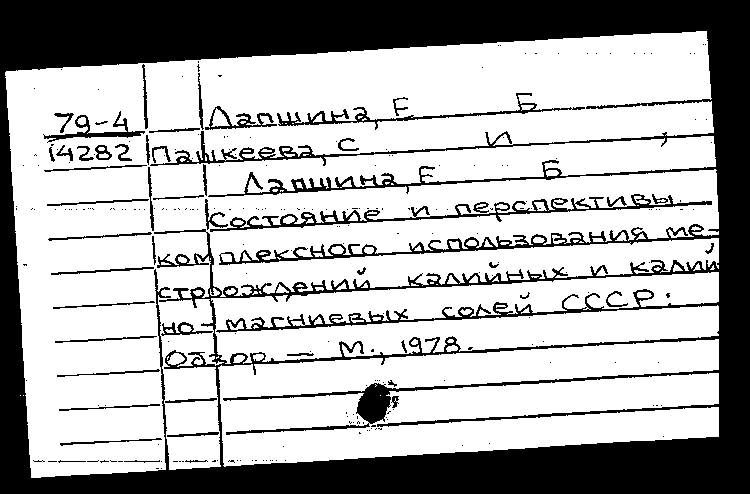 79-4 Лапшина, Е Б
14282 Пашкеева, С И ,
Лапшина, Е Б
Состояние и перспективы
комплексного использования ме-
строождений калийных и калий
но-магниевых солей СССР:
Обзор. — М., 1978.